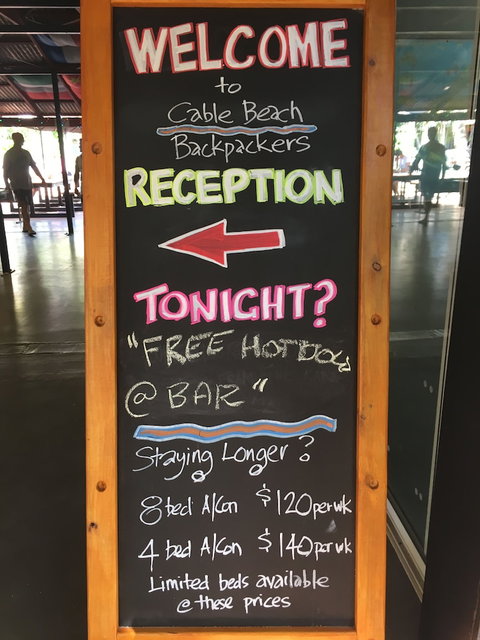 WELCOME
to
Cable Beach
Backpackers
RECEPTION
TONIGHT?
"FREE HOTDOG
@ BAR"
Staying Longer?
8 bed A/Con $120 per wk
4 bed A/Con $140 per wk
Limited beds available
@ these prices